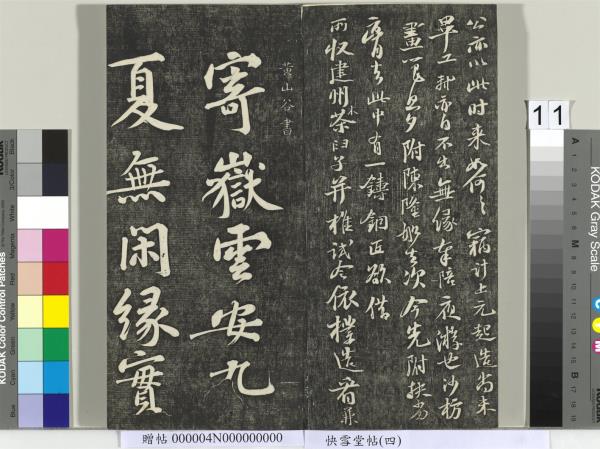 公亦以此时来如何々竊計上元起造尚未
畢工軒亦自不出無緣奉陪夜游也沙枋
畫籠旦夕附陳隆船去次今先附扶劣
膏去此中有一鑄銅匠欲借
所收建州木茶臼子并椎試令依樣造看兼
黃山谷書
寄嶽雲安九
夏無閑緣實
11
贈帖 000004N000000000
快雪堂帖(四)
KODAK Gray Scale
C Y M
A 1 2 3 4 5 6 M 8 9 10 11 12 13 14 15 B 17 18 19
KODAK Color Control Patches
Blue Cyan Green Yellow Red Magenta White 3/Color Black